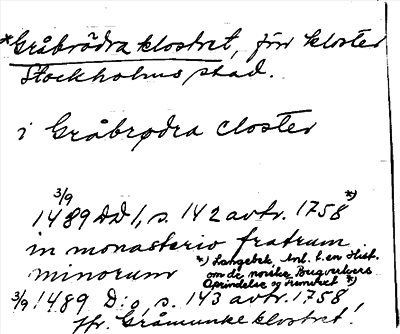 *Gråbrödra klostret, förr kloster
Stockholms stad.
i Gråbrødra closter
3/9
1489 DD 1, s. 142 avtr. 1758 *)
in monasterio fratrum
minorum
*) Langebek, Anl. t. en Hist.
om de norske Bergverkers
Oprindelse og Fremvext *)
3/9 1489 D:o, s. 143 avtr. 1758
Jfr. Gråmunkeklostret!